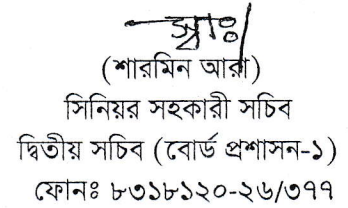 স্বাঃ/
(শারমিন আরা)
সিনিয়র সহকারী সচিব
দ্বিতীয় সচিব (বোর্ড প্রশাসন-১)
ফোনঃ ৮৩১৮১২০-২৬/৩৭৭